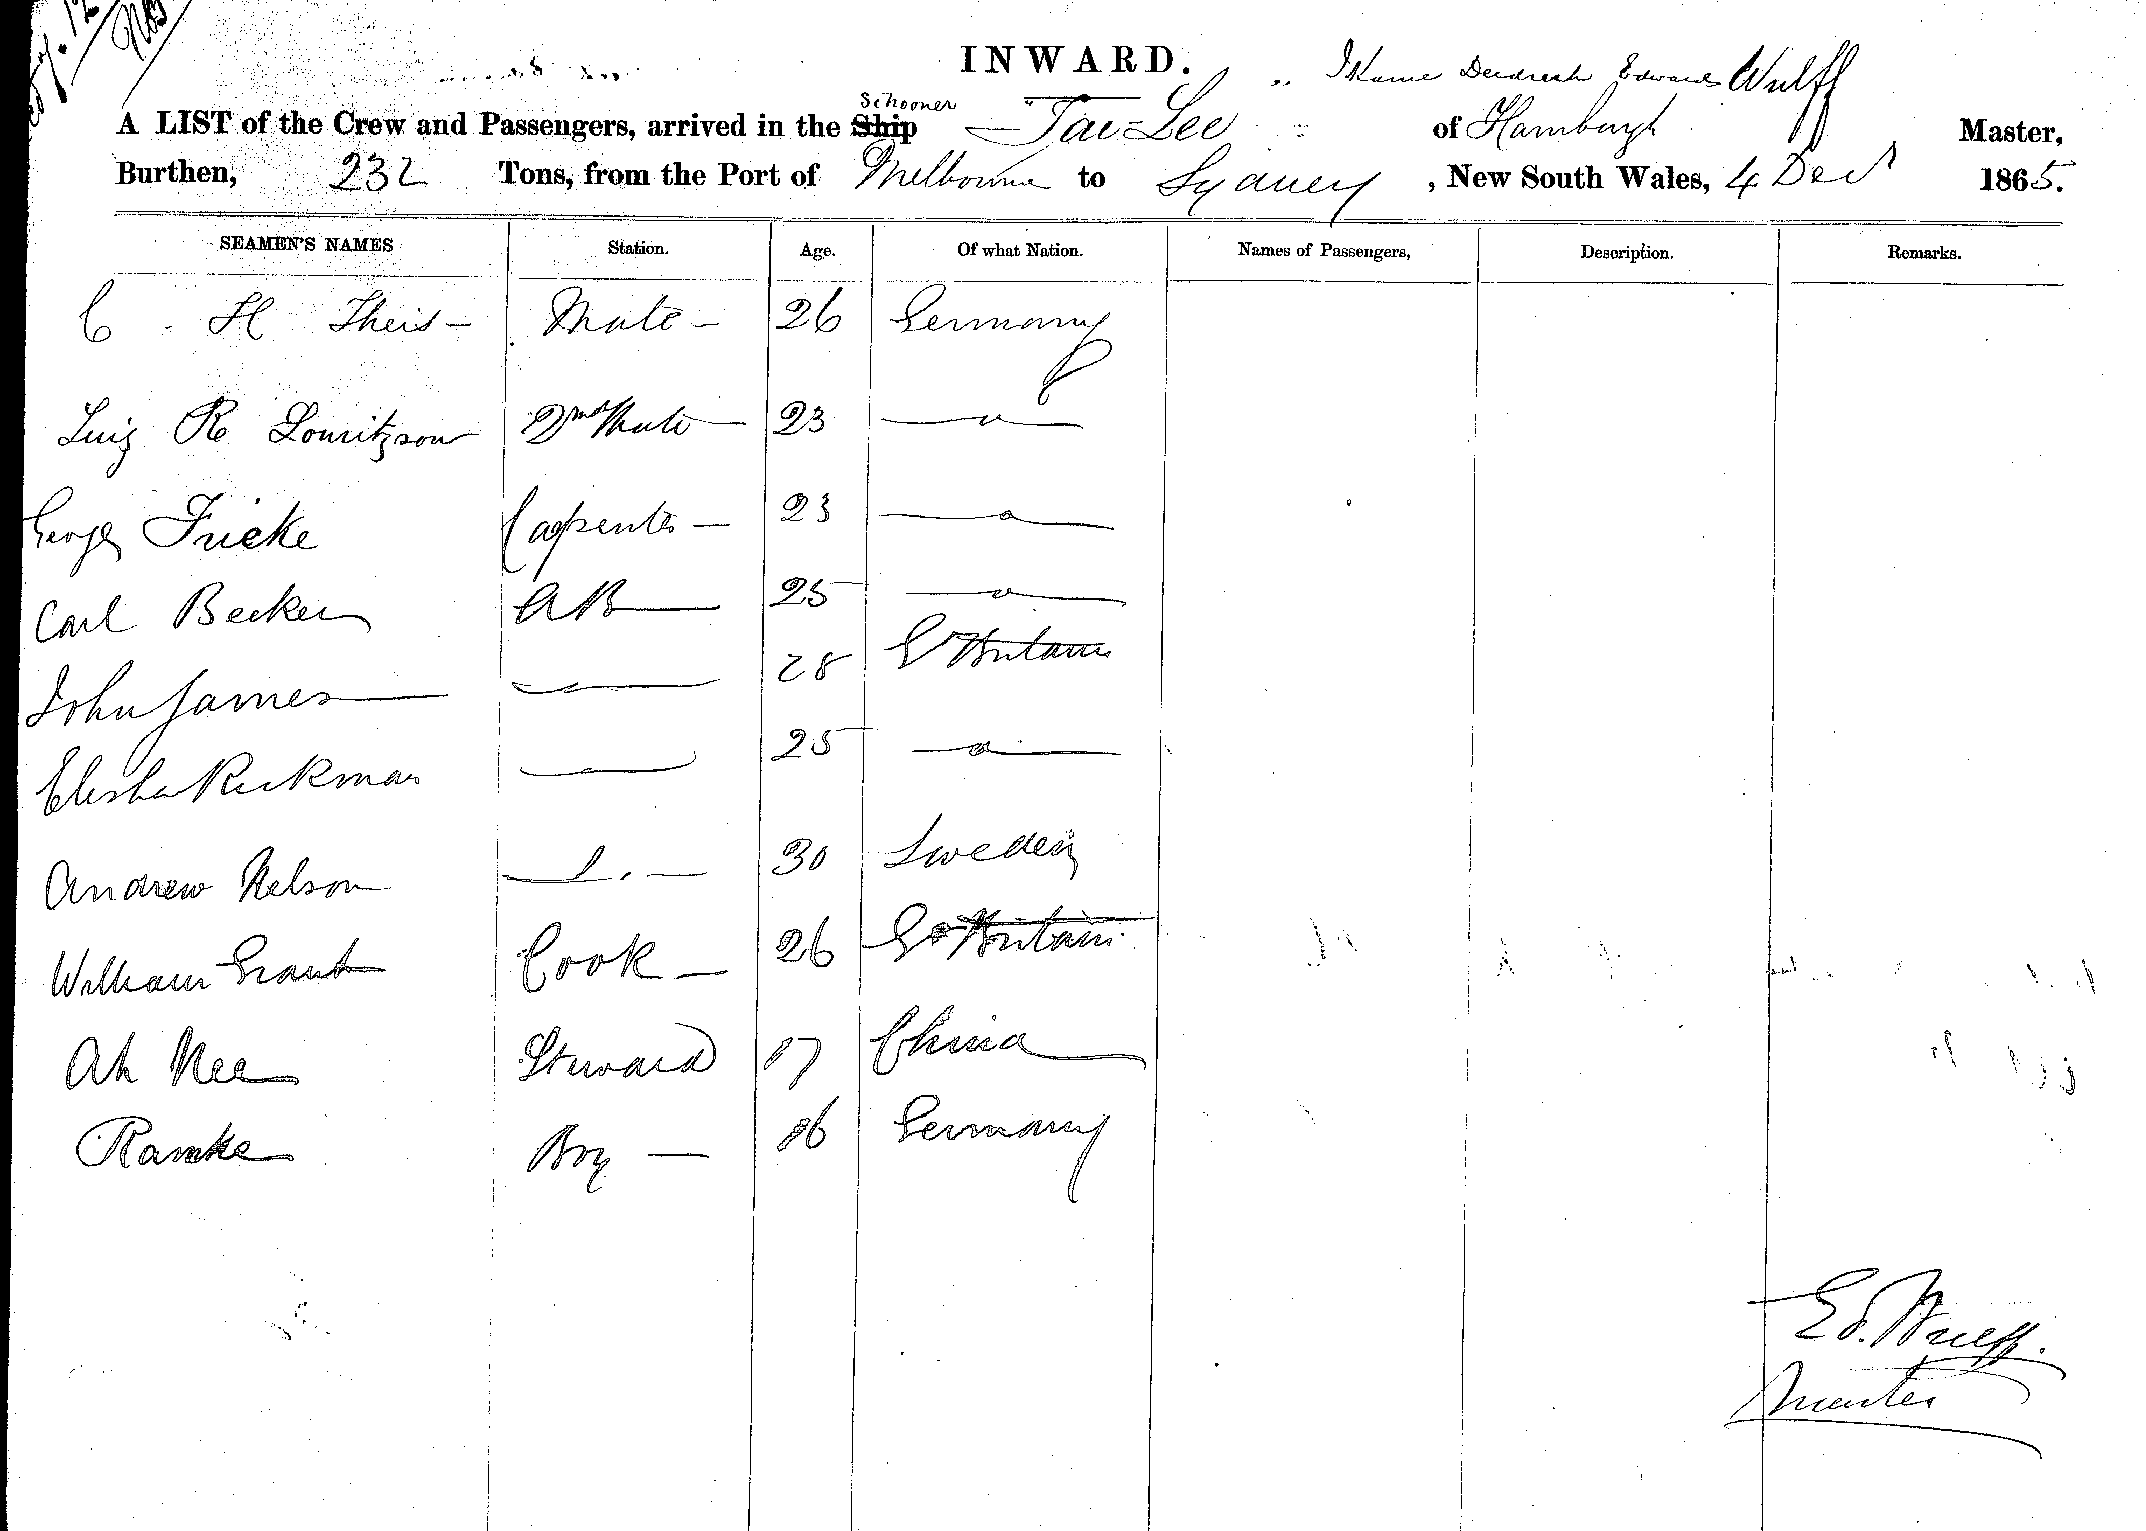 INWARD.
Edward Wulff
Schooner
A LIST of the Crew and Passengers, arrived in the Ship Tai Lee of Hamburgh Master,
Burthen, 232 Tons, from the Port of Melbourne to Sydney, New South Wales, 4 Decr 1865.
SEAMEN'S NAMES Station. Age. Of what Nation. Names of Passengers, Description. Remarks.
C. H Theis - Mate - 26 Germany
R 2nd Mate 23 — " —
George Fricke Carpenter - 23 — " —
Carl Becker AB 25 — " —
John James — " — 28 Gt Britain
Elisha Rickman — " — 25 — " —
Andrew Nelson — " — 30 Sweden
William Grant Cook - 26 Gt Britain
Ah Nee Steward 17 China
Ramke Boy - 16 Germany
Ed. Wulff.
Master